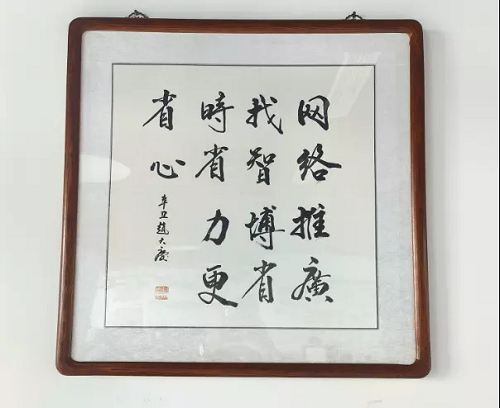 网络推廣
找智博省
時省力更
省心
辛丑趙大慶